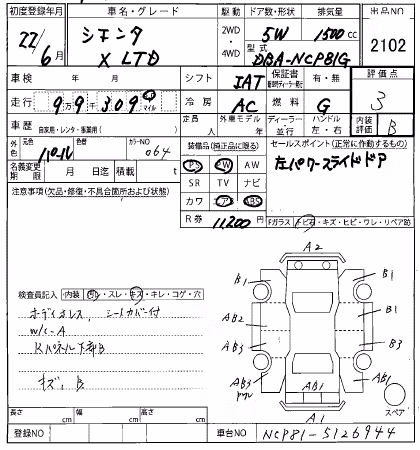 初度登録年月 車名・グレード 駆動 ドア数・形状 排気量 出品NO
22/6月 シエンタ X LTD 2WD・4WD 5W 1500cc 2102
型式 DBA-NCP81G
車検 年 月 シフト IAT 保証書 有・無 評価点
走行 9万9千309 km マイル 冷房 AC 燃料 G 3
車歴 自家用・レンタ・事業用( ) 外車モデル年 ディーラー・並行 ハンドル 左・右 内装評価 B
外色 元色 色替 カラーNO 064
装備品(純正品に限る) セールスポイント(正常に作動するもの)
PS PW AW 左パワースライドドア
名義変更期限 月 日迄 積載 t
SR TV ナビ
注意事項(欠品・修復・不具合箇所および状態)
カワ エアB ABS
R券 11,200円
Fガラス トビ石・キズ・ヒビ・ワレ・リペア跡
A2
B1 B1
AB2 B1
AB3 B3
AB3 AB1 AB1
A1
スペア
検査員記入 内装 スレ・キズ・キレ・コゲ・穴
シートカバー付
W/C-A
下部B
キズ,B
長さ cm 幅 cm 高さ cm
登録NO 車台NO NCP81-5126944